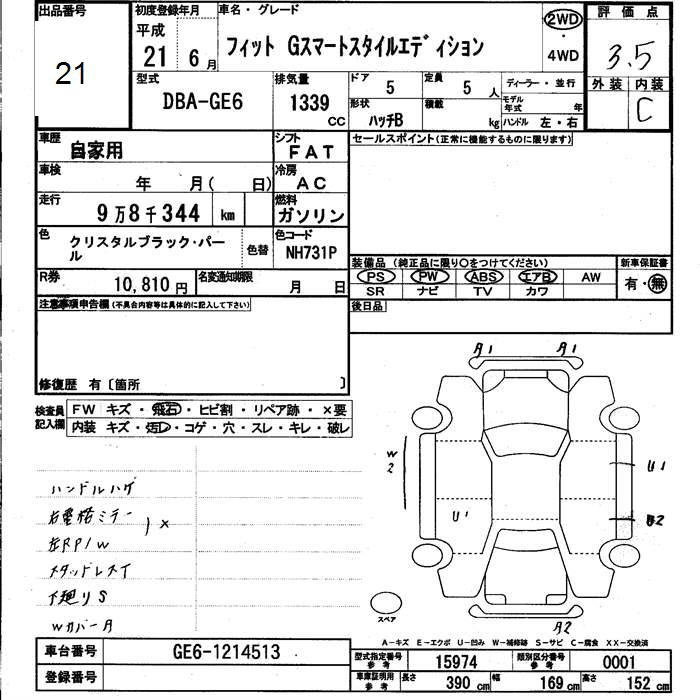 出品番号
21
初度登録年月
平成
21 6月
車名・グレード
フィット Gスマートスタイルエディション
2WD
・
4WD
評価点
3.5
外装 内装
C
型式
DBA-GE6
排気量
1339
CC
ドア
5
定員
5 人
ディーラー・並行
形状
ハッチB
積載
kg
モデル年式 年
ハンドル 左・右
車歴
自家用
シフト
FAT
セールスポイント(正常に機能するものに限ります)
車検
年 月( 日)
冷房
AC
走行
9万8千344 km
燃料
ガソリン
色
クリスタルブラック・パール
色替
色コード
NH731P
装備品 (純正品に限り○をつけてください)
PS PW ABS エアB AW
SR ナビ TV カワ
新車保証書
有・無
R券
10,810円
名変通知期限
月 日
後日品
注意事項申告欄(不具合内容等は具体的に記入して下さい)
修復歴 有〔箇所 〕
検査員記入欄
FW キズ・飛石・ヒビ割・リペア跡・×要
内装 キズ・汚レ・コゲ・穴・スレ・キレ・破レ
A1 A1
W2
U1
U1
B2
A2
スペア
ハンドルハゲ
右電格ミラー
左RP/W
]×
スタッドレスT
下廻りS
WカバーA
A-キズ E-エクボ U-凹み W-補修跡 S-サビ C-腐食 XX-交換済
車台番号
GE6-1214513
登録番号
型式指定番号参考
15974
類別区分番号参考
0001
車庫証明用参考
長さ 390 cm 幅 169 cm 高さ 152 cm